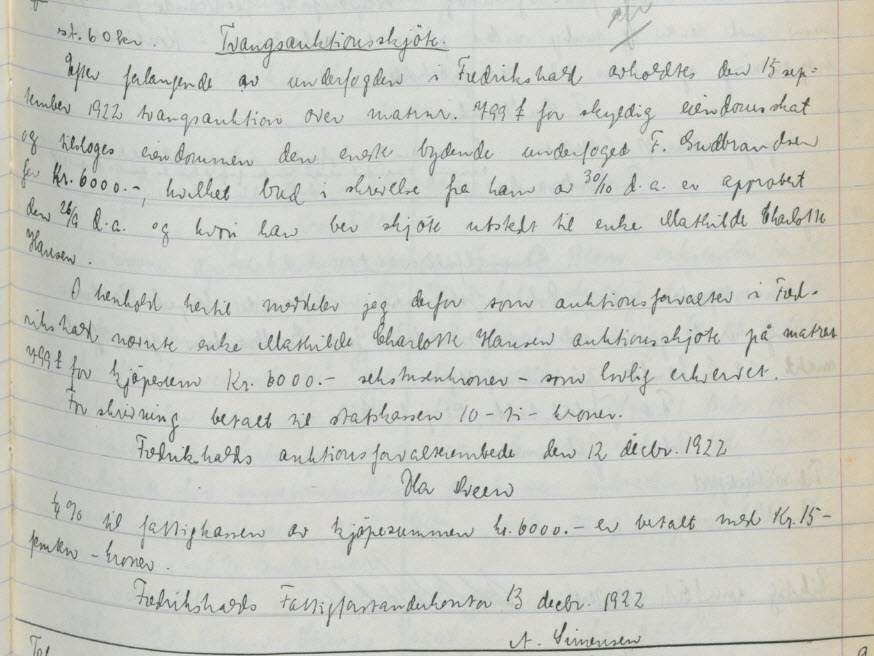 st. 60 kr. Tvangsauktionsskjöte.
Efter forlangende av underfogden i Fredrikshald avholdtes den 15 sep=
tember 1922 tvangsauktion over matrnr. 499 f for skyldig eiendomsskat
og tilsloges eiendommen den eneste bydende underfoged F. Gudbrandsen
for Kr. 6000.-, hvilket bud i skrivelse fra ham av 30/10 d.a. er approbert
den 26/9 d.a. og hvori han ber skjöte utstedt til enke Mathilde Charlotte
Hansen.
I henhold hertil meddeler jeg derfor som auktionsforvalter i Fred-
rikshald nævnte enke Mathilde Charlotte Hansen auktionsskjöte på matrnr
499 f for kjöpesum Kr. 6000.- sekstusenkroner - som lovlig erhvervet.
For skrivning betalt til statskassen 10 - ti - kroner.
Fredrikshalds auktionsforvalterembede den 12 decbr. 1922
¼ % til fattigkassen av kjöpesummen kr. 6000.- er betalt med Kr. 15 -
femten - kroner.
Fredrikshalds Fattigforstanderkontor 13 decbr. 1922
A. Simensen